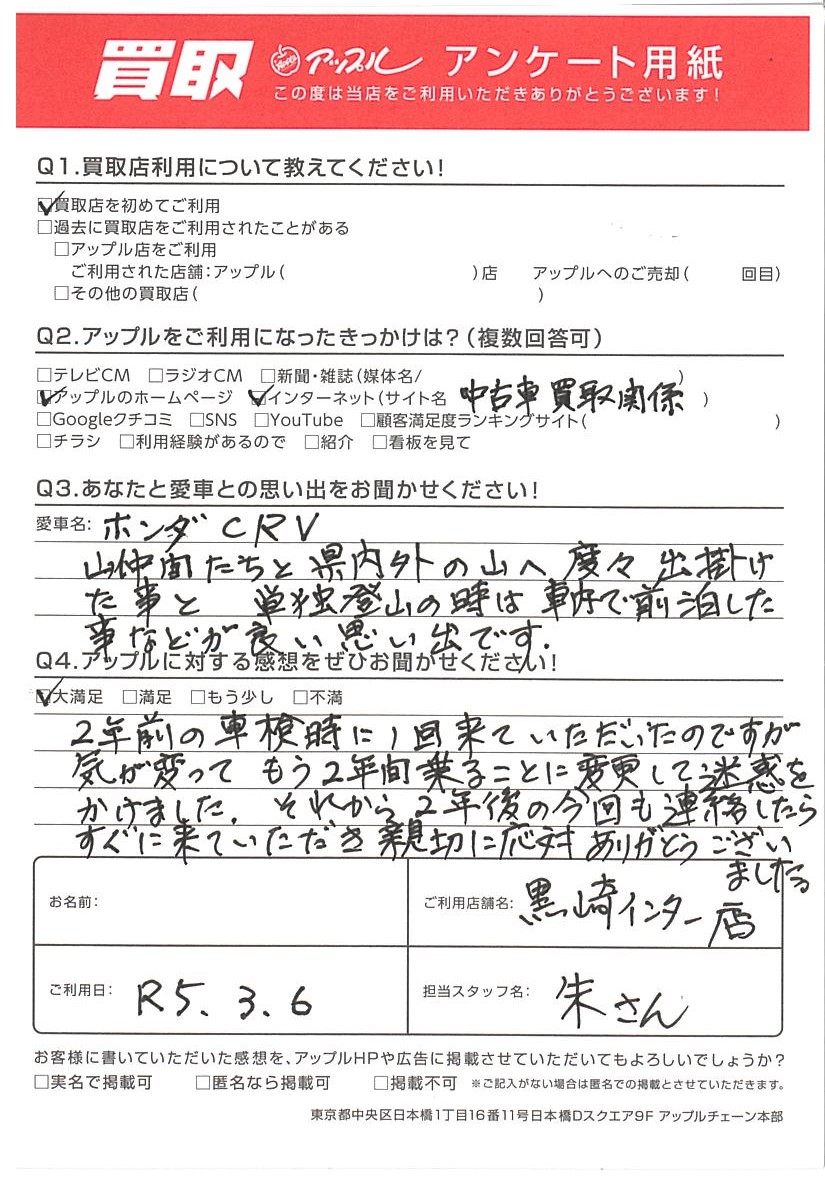 買取 アップル アンケート用紙
この度は当店をご利用いただきありがとうございます!
Q1.買取店利用について教えてください!
☑買取店を初めてご利用
□過去に買取店をご利用されたことがある
□アップル店をご利用
ご利用された店舗:アップル( )店 アップルへのご売却( 回目)
□その他の買取店( )
Q2.アップルをご利用になったきっかけは?(複数回答可)
□テレビCM □ラジオCM □新聞・雑誌(媒体名/ )
☑アップルのホームページ ☑インターネット(サイト名 中古車買取関係 )
□Googleクチコミ □SNS □YouTube □顧客満足度ランキングサイト( )
□チラシ □利用経験があるので □紹介 □看板を見て
Q3.あなたと愛車との思い出をお聞かせください!
愛車名: ホンダ CRV
山仲間たちと県内外の山へ度々出掛け
た事と 単独登山の時は車内で前泊した
事などが良い思い出です.
Q4.アップルに対する感想をぜひお聞かせください!
☑大満足 □満足 □もう少し □不満
2年前の車検時に1回来ていただいたのですが
気が変って もう2年間乗ることに変更して迷惑を
かけました. それから2年後の今回も連絡したら
すぐに来ていただき親切に応対ありがとうござい
ました
お名前:
ご利用店舗名: 黒崎インター店
ご利用日: R5.3.6
担当スタッフ名: 朱さん
お客様に書いていただいた感想を、アップルHPや広告に掲載させていただいてもよろしいでしょうか?
□実名で掲載可 □匿名なら掲載可 □掲載不可 ※ご記入がない場合は匿名での掲載とさせていただきます。
東京都中央区日本橋1丁目16番11号日本橋Dスクエア9F アップルチェーン本部